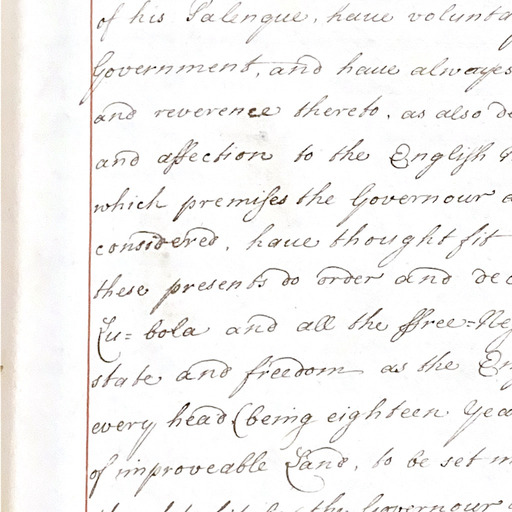 of his Palenque, have volunta
Government, and have alwayes
and reverence thereto, as also de
and affection to the English
which premises the Governour
considered, have thought fit
these presents do order and dec
Lu=bola and all the ffree=Neg
state and freedom as the Eng
every head (being eighteen Yea
of improveable Land, to be set
the Governour